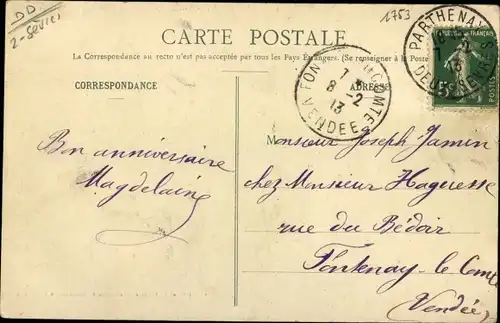 DD
2-Sèvres
1753
CARTE POSTALE
La Correspondance au recto n'est pas acceptée par tous les Pays Étrangers. (Se renseigner à la Poste
CORRESPONDANCE
ADRESSE
PARTHENAY
7 -2
13
DEUX-SEVRES
FONTENAY COMTE
7
8 -2
13
VENDEE
POSTES
Bon anniversaire
Magdeleine
Monsieur Joseph Jamin
chez Monsieur Haguesse
rue du Bédoir
Fontenay-le-Comte
Vendée